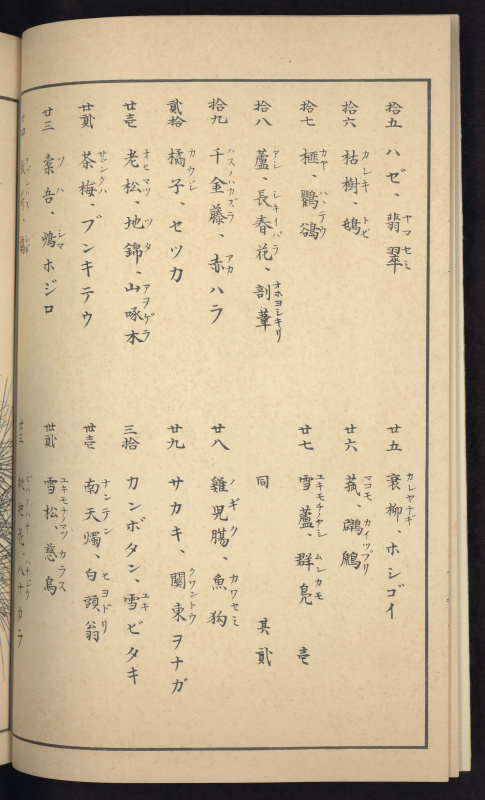 拾五 ハゼ、翡翠
ヤマセミ
拾六 枯樹、鵄
カレキ トビ
拾七 榧、鸜鵒
カヤ ハヽテウ
拾八 蘆、長春花、剖葦
アシ シキイバラ オホヨシキリ
拾九 千金藤、赤ハラ
ハスノハカズラ アカ
貳拾 橘子、セツカ
カウジ
廿壱 老松、地錦、山啄木
オヒマツ ツタ アヲゲラ
廿貳 茶梅、ブンキテウ
サンクハ
廿三 橐吾、嶋ホジロ
ツハ シマ
廿五 衰柳、ホシゴイ
カレヤナギ
廿六 菰、鸊鷉
マコモ、カイツブリ
廿七 雪蘆、群鳧 壱
ユキモチノアシ ムレカモ
同 其貳
廿八 雞児腸、魚狗
ノギク カワセミ
廿九 サカキ、関東ヲナガ
クワントウ
三拾 カンボタン、雪ビタキ
ユキ
丗壱 南天燭、白頭翁
ナンテン ヒヨドリ
丗貳 雪松、慈烏
ユキモチノマツ カラス
丗三